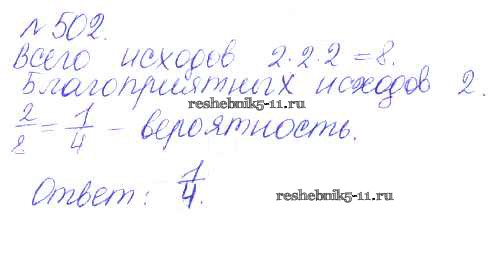 №502.
Всего исходов 2·2·2=8.
Благоприятных исходов 2.
reshebnik5-11.ru
2/8 = 1/4 – вероятность.
Ответ: 1/4.
reshebnik5-11.ru